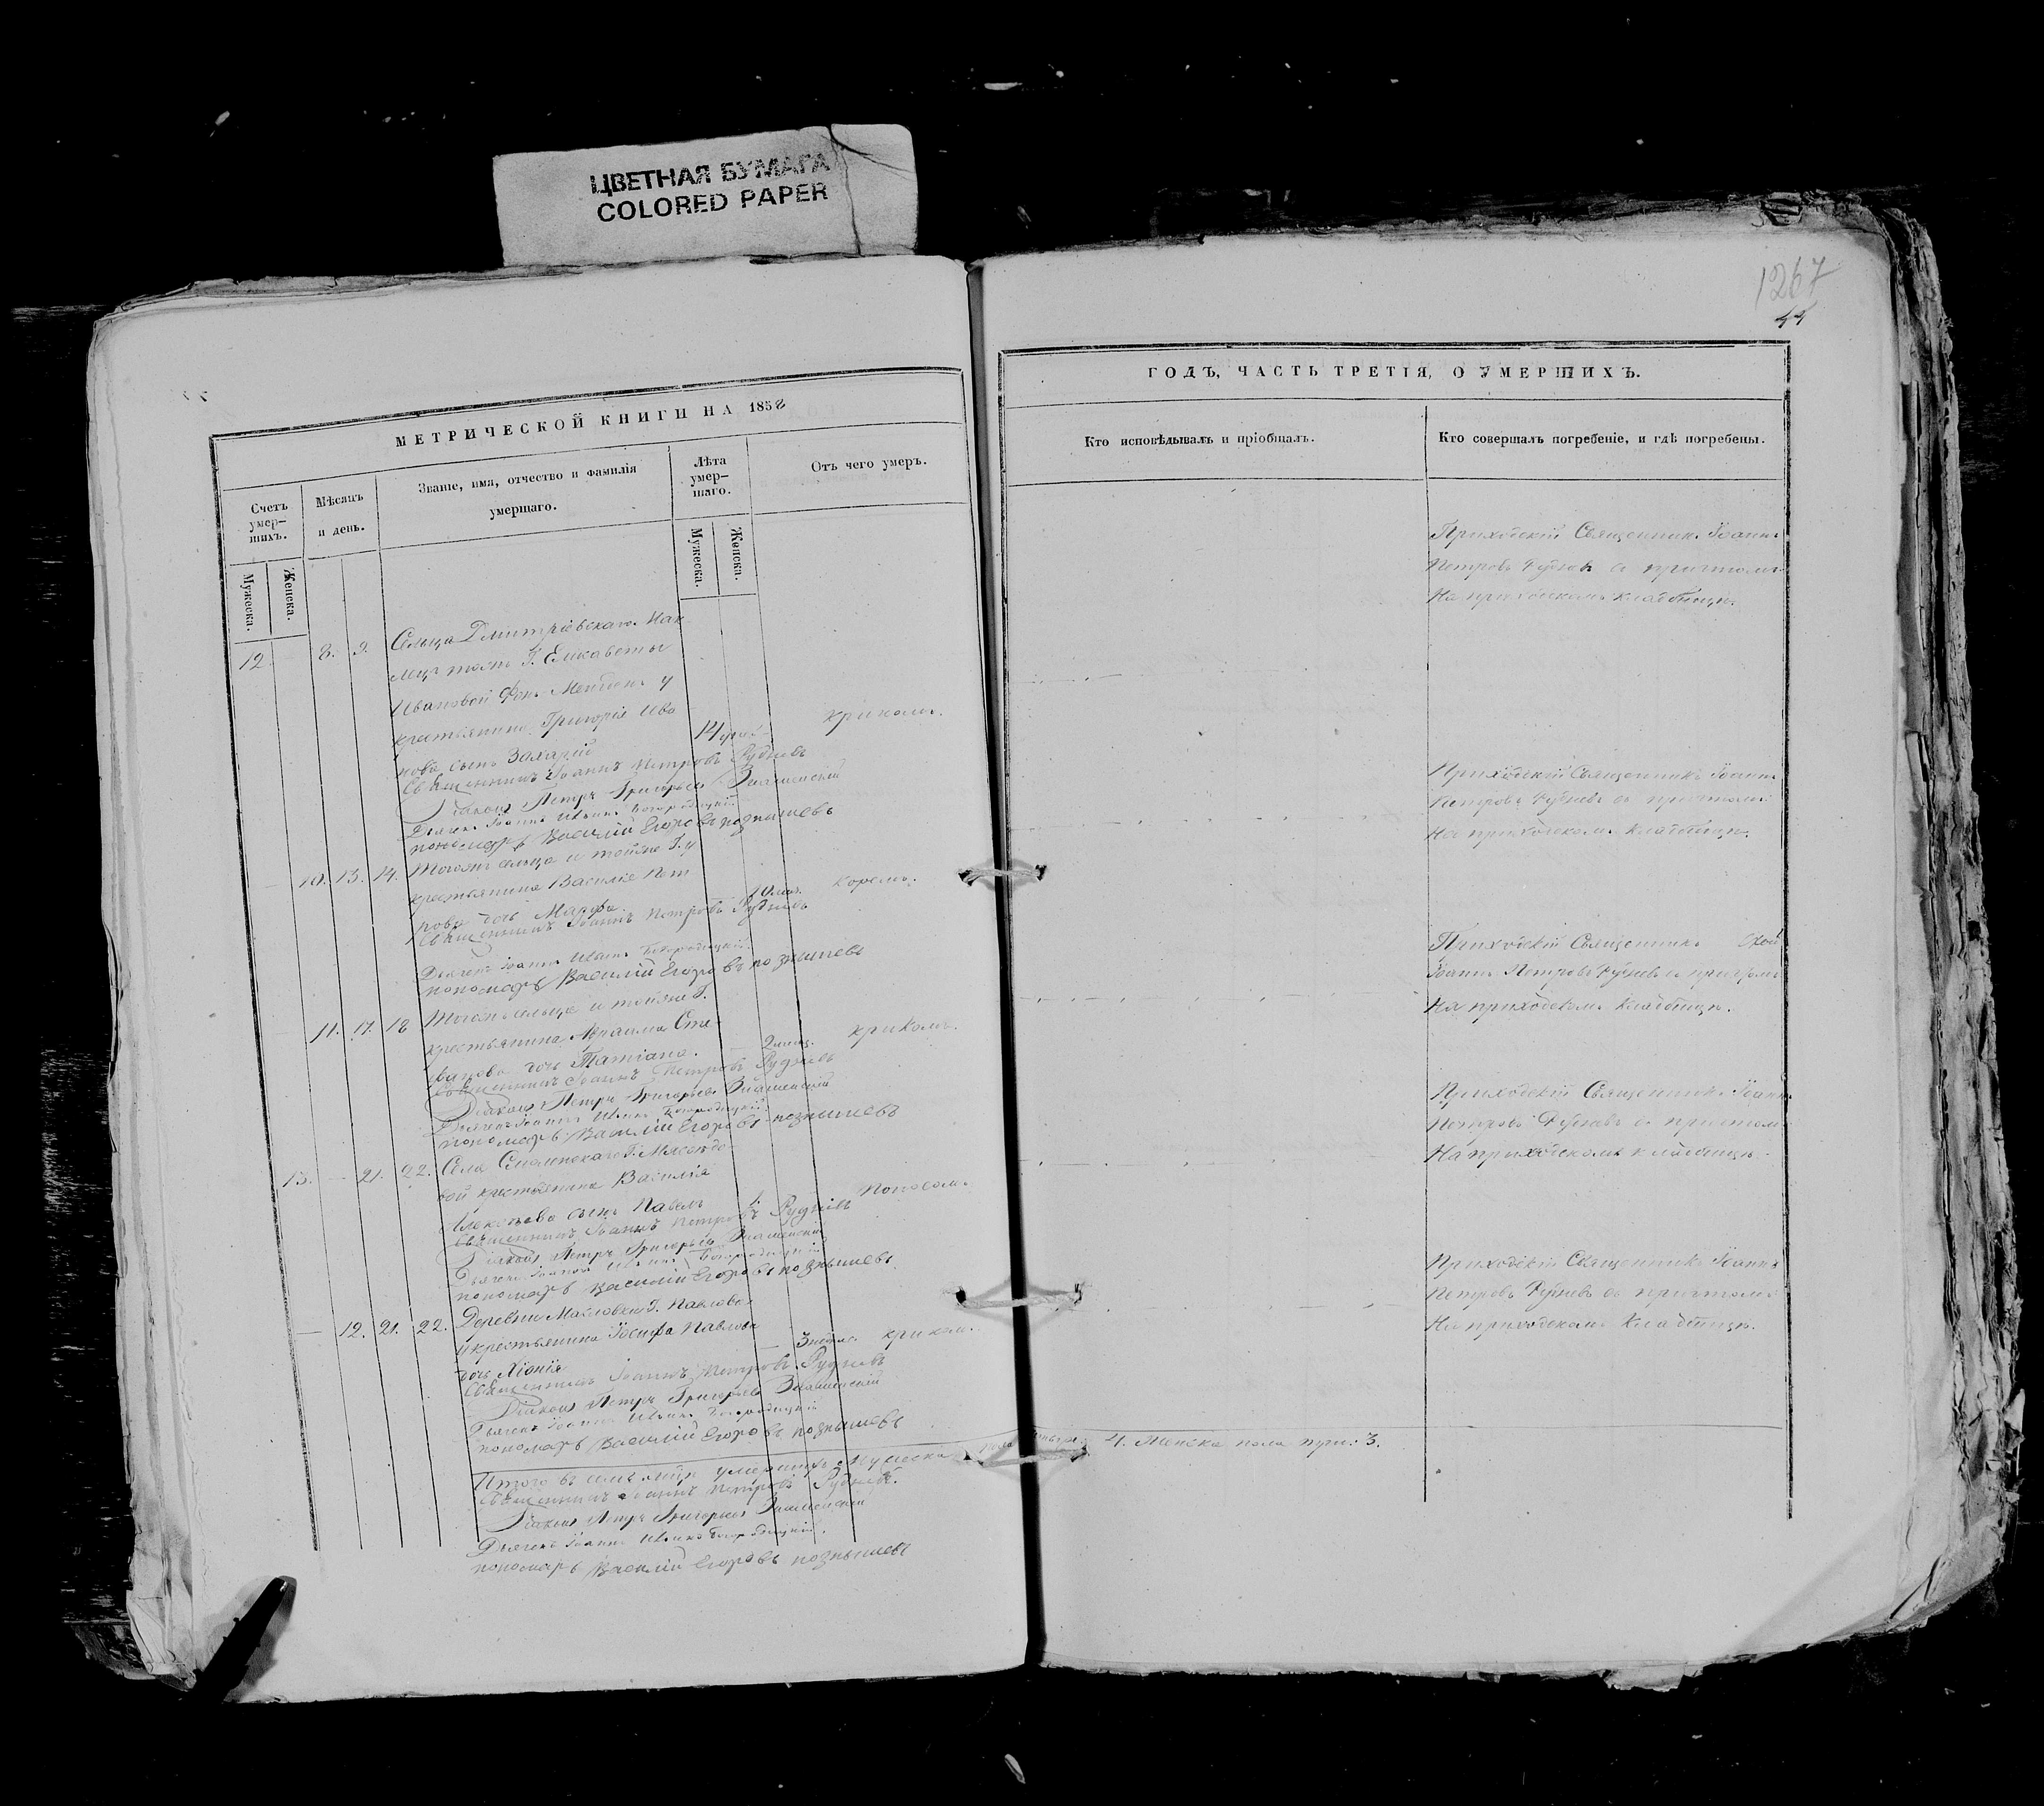 ЦВЕТНАЯ БУМАГА
COLORED PAPER
МЕТРИЧЕСКОЙ КНИГИ НА 1858
Счетъ умер-
шихъ.
Мѣсяцъ
и день.
Званіе, имя, отчество и фамилія
умершаго.
Лѣта
умер-
шаго.
Отъ чего умеръ.
Мужеска.
Женска.
Мужеска.
Женска.
12. 8. 9. Сельца Дмитріевскаго
Г. Елисаветы
Ивановой Фонъ
крестьянина Григорія Ива
нова сынъ Захарій крикомъ.
Священникъ Іоаннъ Петровъ Рудневъ
Діаконъ Петръ Григорьевъ Знаменскій
Дьячекъ Іоаннъ Богородицкій
пономарь Василій Егоровъ познышевъ
10. 13. 14. Тогожъ сельца и тойже Г. у
крестьянина Василія Пет
рова дочь Марфа. корью.
Священникъ Іоаннъ Петровъ Рудневъ
Дьячекъ Іоаннъ Богородицкій
пономарь Василій Егоровъ познышевъ
11. 17. 18 Тогожъ сельца и тойже Г.
крестьянина Сте-
панова дочь Татіана. крикомъ.
Священникъ Іоаннъ Петровъ Рудневъ
Діаконъ Петръ Григорьевъ Знаменскій
Дьячекъ Іоаннъ Богородицкій
пономарь Василій Егоровъ познышевъ
13. — 21. 22. Села Г.
крестьянина Василія
сынъ Павелъ поносомъ.
Священникъ Іоаннъ Петровъ Рудневъ
Діаконъ Петръ Григорьевъ Знаменскій
Дьячекъ Іоаннъ Богородицкій
пономарь Василій Егоровъ познышевъ
— 12. 21. 22. Деревни Масловки Г. Павловой
крестьянина Іосифа Павлова
дочь Хіонія — 3 крикомъ.
Священникъ Іоаннъ Петровъ Рудневъ
Діаконъ Петръ Григорьевъ Знаменскій
Дьячекъ Іоаннъ Богородицкій
пономарь Василій Егоровъ познышевъ
Итого въ умершихъ Мужеска пола 4. Женска пола 3.
Священникъ Іоаннъ Петровъ Рудневъ.
Діаконъ Петръ Григорьевъ Знаменскій
Дьячекъ Іоаннъ Богородицкій.
пономарь Василій Егоровъ познышевъ
1267
44
ГОДЪ, ЧАСТЬ ТРЕТІЯ, О УМЕРШИХЪ.
Кто исповѣдывалъ и пріобщалъ.
Кто совершалъ погребеніе, и гдѣ погребены.
Приходскій Священникъ Іоаннъ
Петровъ Рудневъ съ причтомъ
На приходскомъ кладбищѣ.
Приходскій Священникъ Іоаннъ
Петровъ Рудневъ съ причтомъ
На приходскомъ кладбищѣ.
Приходскій Священникъ
Іоаннъ Петровъ Рудневъ съ причтомъ
На приходскомъ кладбищѣ.
Приходскій Священникъ Іоаннъ
Петровъ Рудневъ съ причтомъ
На приходскомъ кладбищѣ.
Приходскій Священникъ Іоаннъ
Петровъ Рудневъ съ причтомъ
На приходскомъ кладбищѣ.